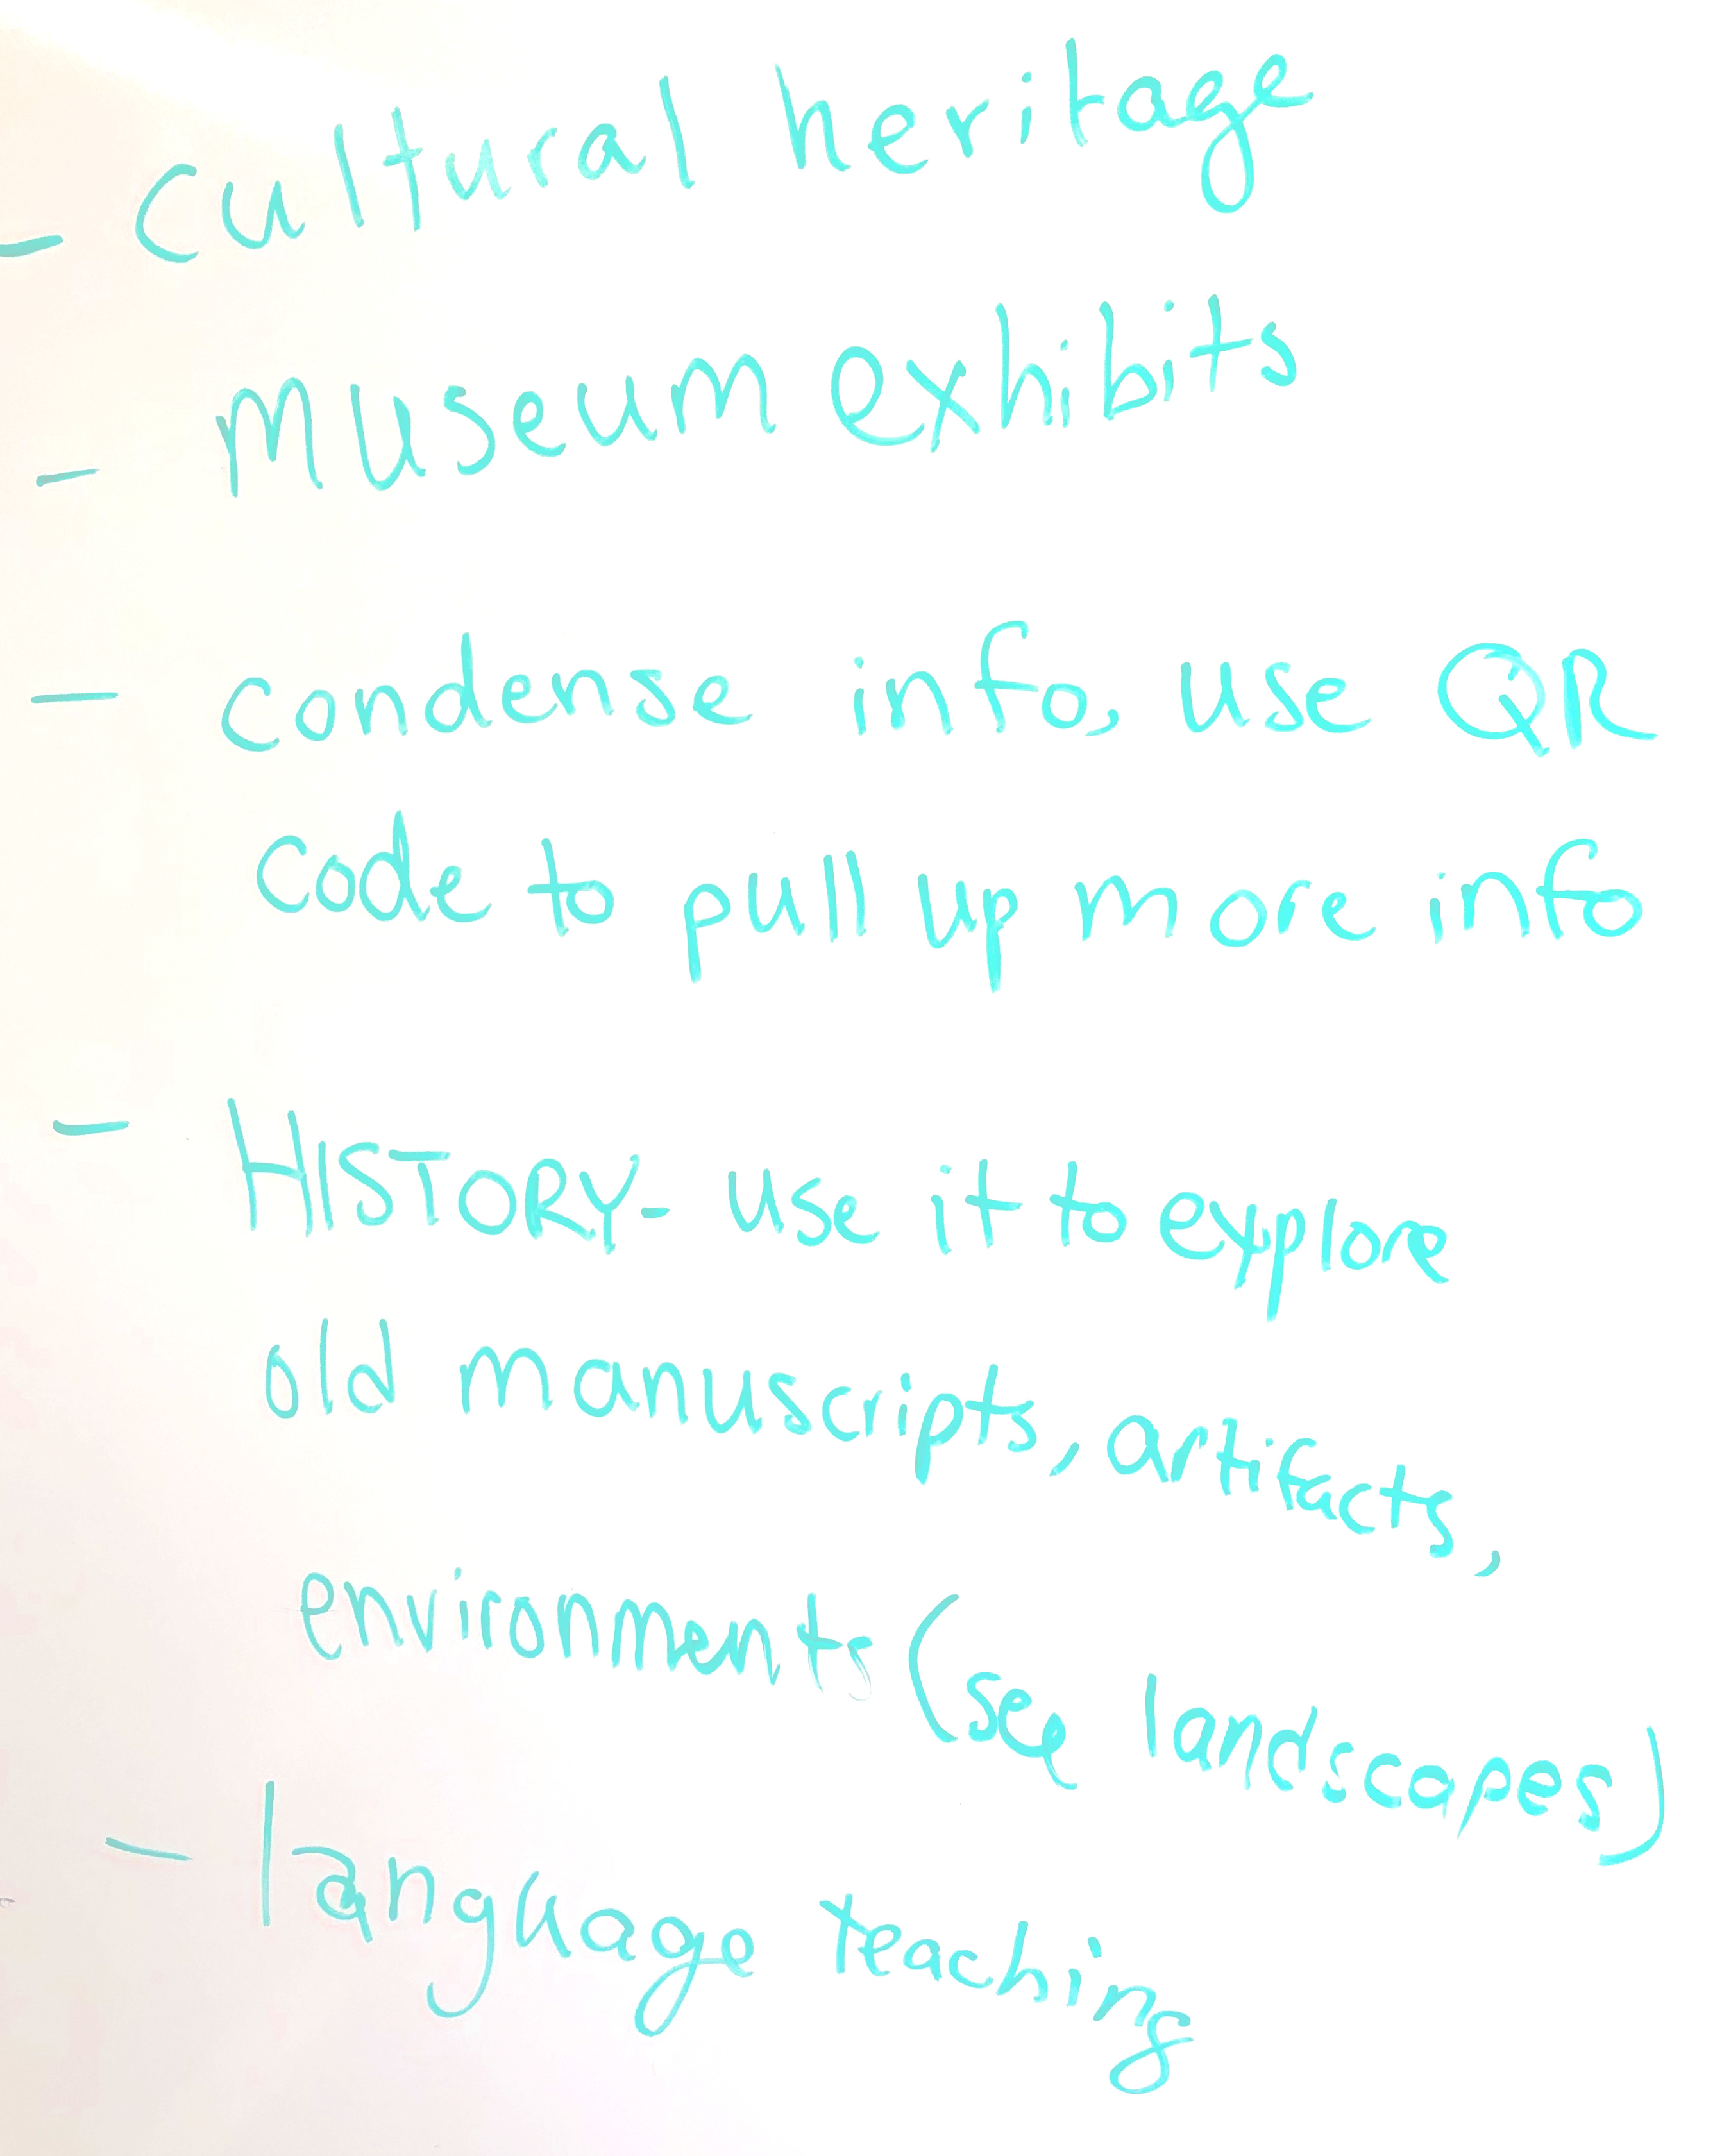 - Cultural heritage
- Museum exhibits
- condense info, use QR
code to pull up more info
- HISTORY- use it to explore
old manuscripts, artifacts,
environments (see landscapes)
- language teaching